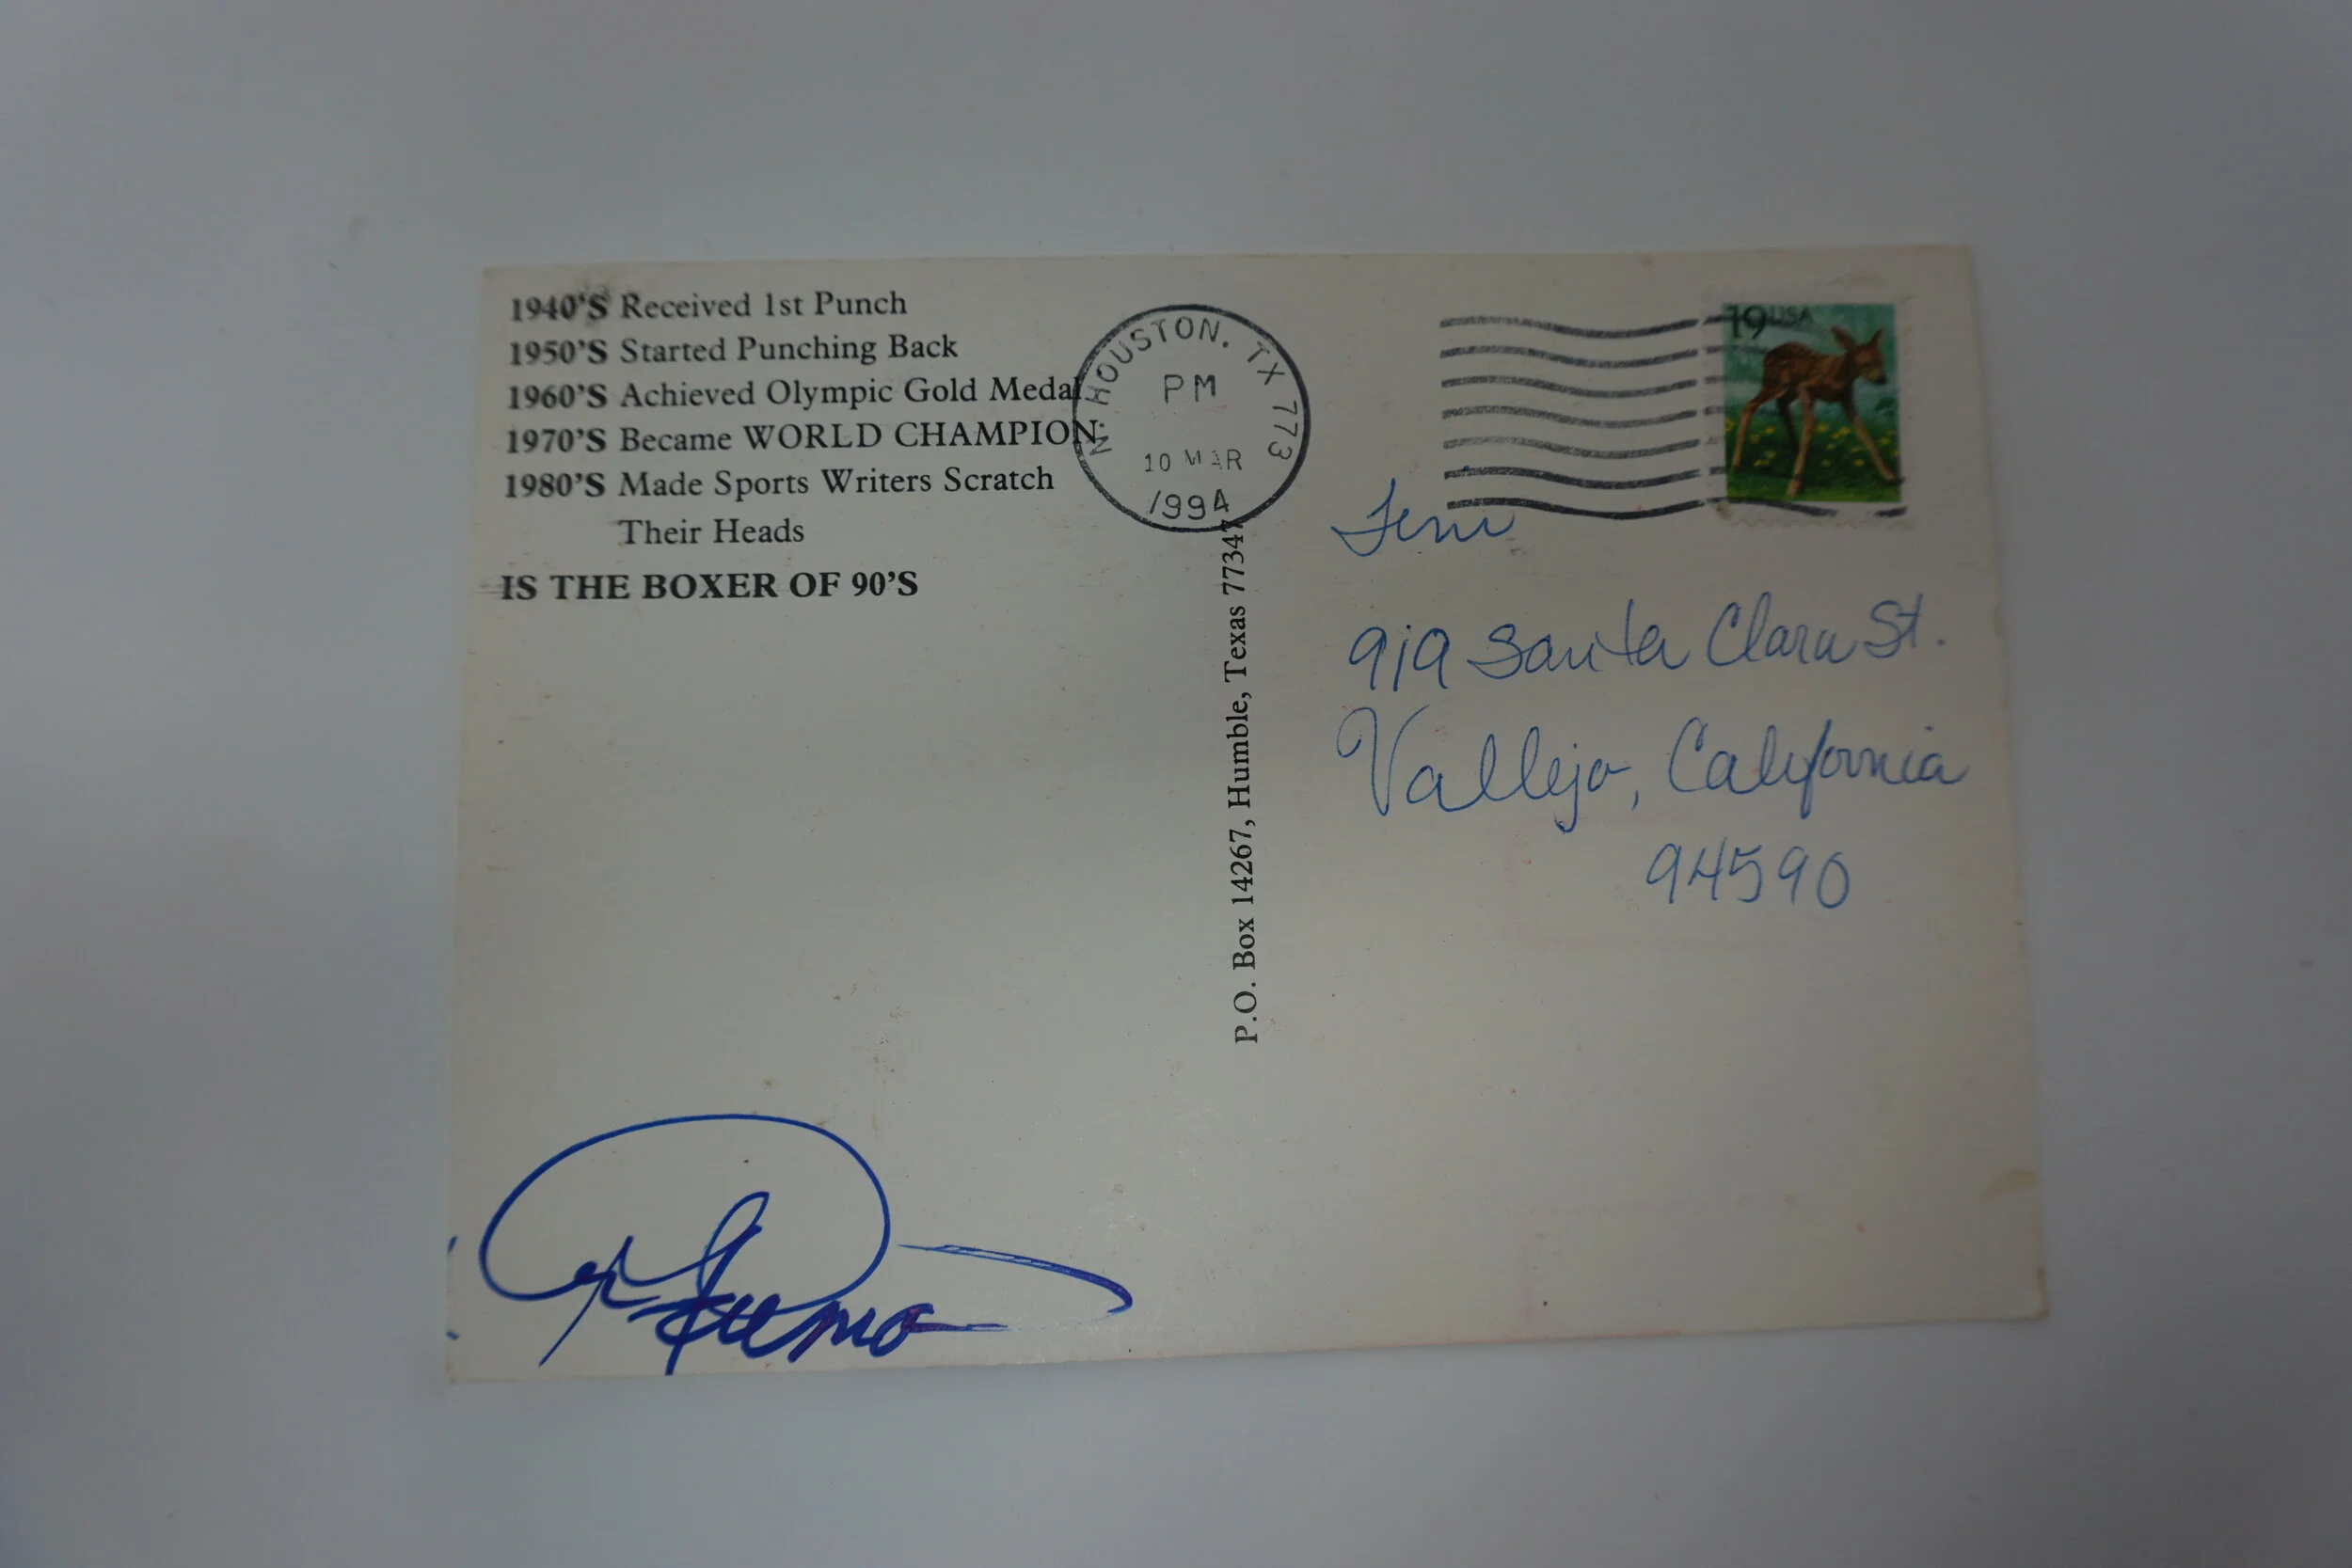 1940'S Received 1st Punch
1950'S Started Punching Back
1960'S Achieved Olympic Gold Medal
1970'S Became WORLD CHAMPION
1980'S Made Sports Writers Scratch
Their Heads
IS THE BOXER OF 90'S
N HOUSTON, TX 773
PM
10 MAR
1994
P.O. Box 14267, Humble, Texas 77347
19 USA
919 Santa Clara St.
Vallejo, California
94590